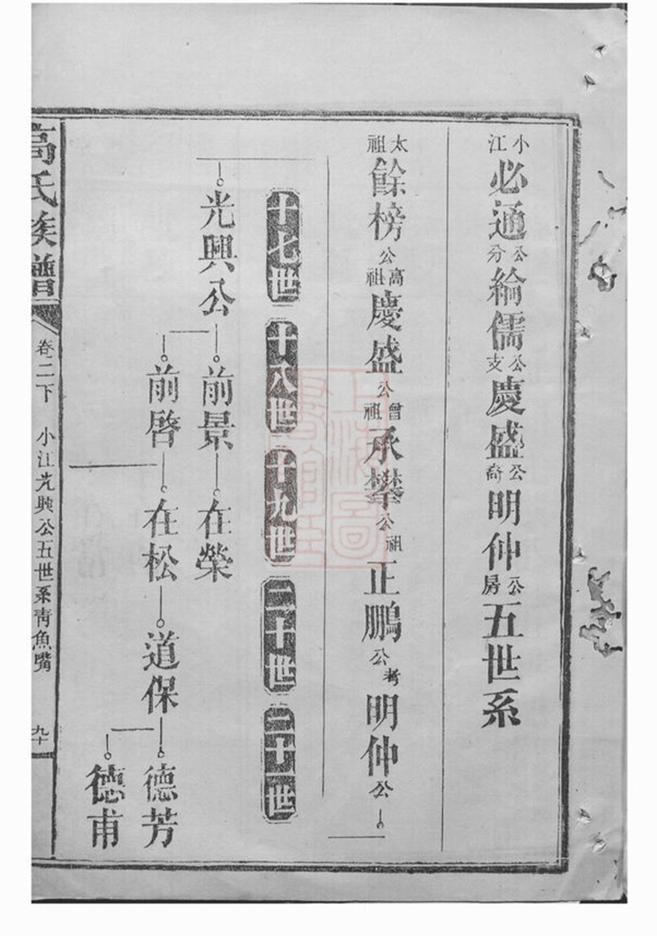 小江必通公分綸儒公支慶盛公裔明仲公房五世系
太祖餘榜公高祖慶盛公曾祖承攀公祖正鵬公考明仲公
十七世 十八世 十九世 二十世 二十一世
光興公 前景 在榮
前啓 在松 道保 德芳
德甫
高氏族譜 卷二下 小江光興公五世系青魚嘴 九十
上海圖書館藏